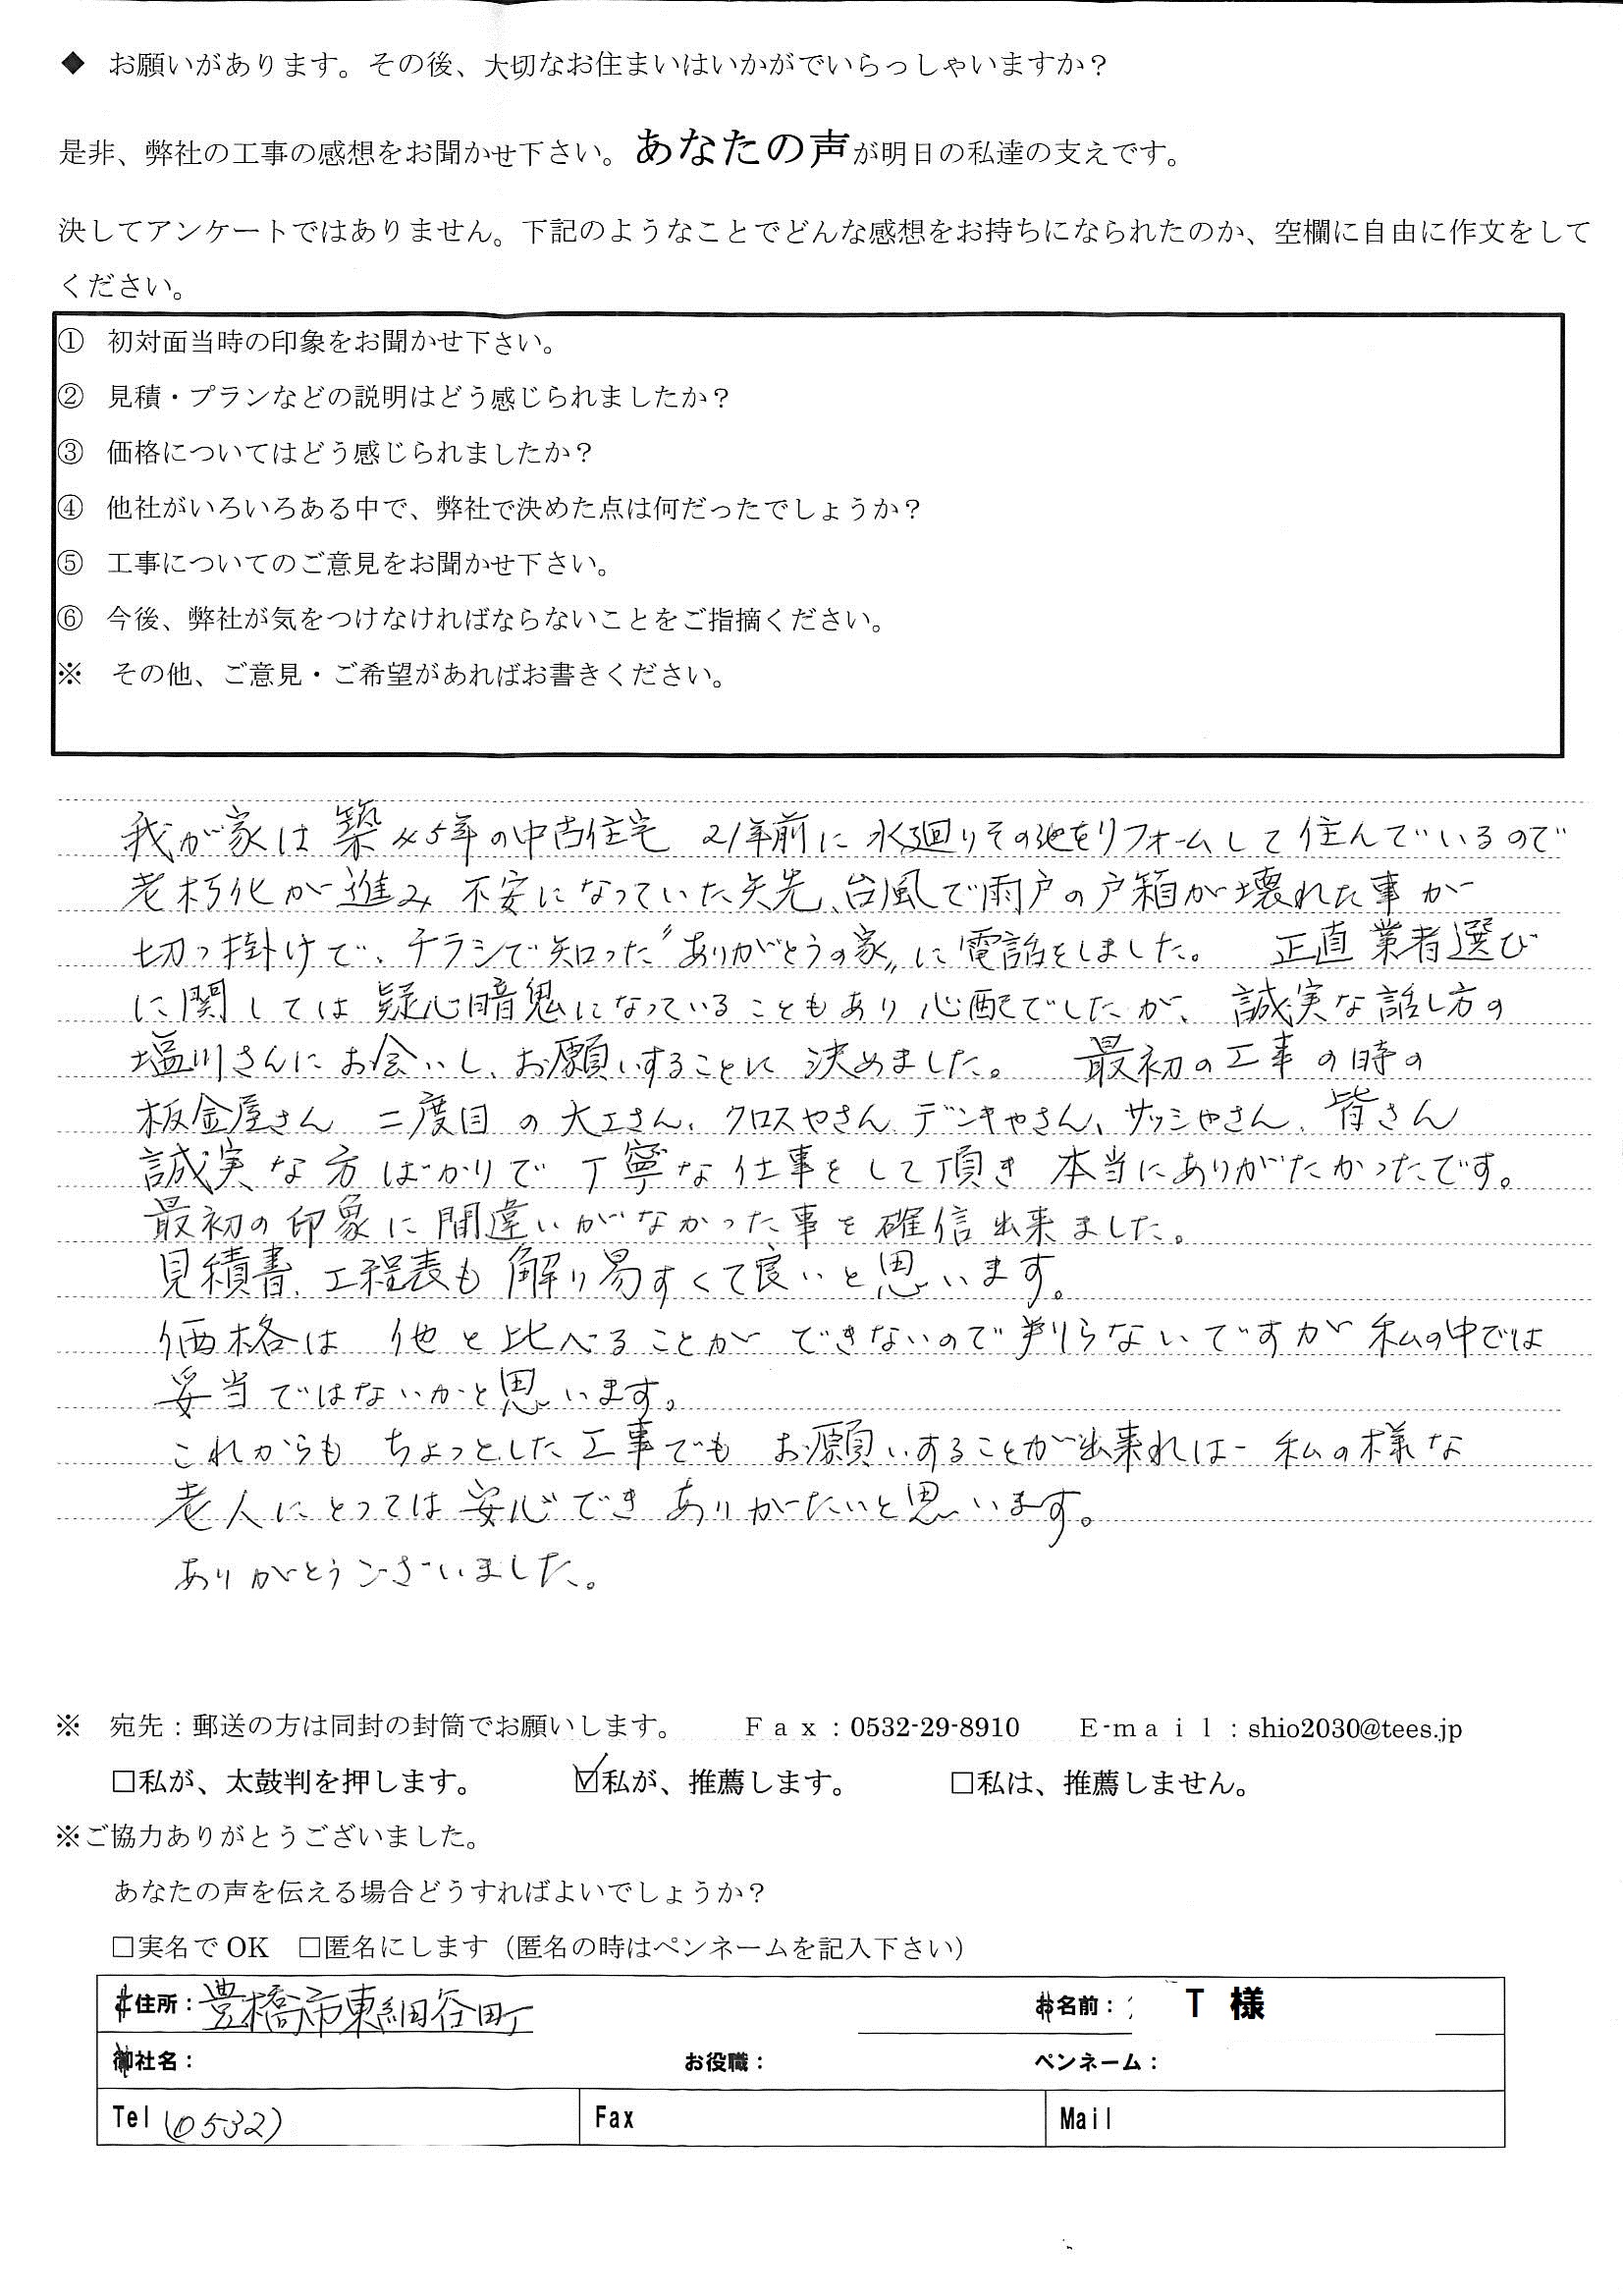 ◆ お願いがあります。その後、大切なお住まいはいかがでいらっしゃいますか？
是非、弊社の工事の感想をお聞かせ下さい。あなたの声が明日の私達の支えです。
決してアンケートではありません。下記のようなことでどんな感想をお持ちになられたのか、空欄に自由に作文をして
ください。
① 初対面当時の印象をお聞かせ下さい。
② 見積・プランなどの説明はどう感じられましたか？
③ 価格についてはどう感じられましたか？
④ 他社がいろいろある中で、弊社で決めた点は何だったでしょうか？
⑤ 工事についてのご意見をお聞かせ下さい。
⑥ 今後、弊社が気をつけなければならないことをご指摘ください。
※ その他、ご意見・ご希望があればお書きください。
我が家は築45年の中古住宅 21年前に水廻りその他をリフォームして住んでいるので
老朽化が進み 不安になっていた矢先、台風で雨戸の戸箱が壊れた事が
切っ掛けで、チラシで知った〝ありがとうの家〟に電話をしました。 正直業者選び
に関しては疑心暗鬼になっていることもあり心配でしたが、誠実な話し方の
塩川さんにお会いし、お願いすることに決めました。 最初の工事の時の
板金屋さん 二度目の大工さん、クロスやさん、デンキやさん、サッシやさん、皆さん
誠実な方ばかりで丁寧な仕事をして頂き本当にありがたかったです。
最初の印象に間違いがなかった事を確信出来ました。
見積書、工程表も解り易すくて良いと思います。
価格は 他と比べることが できないので判らないですが 私の中では
妥当ではないかと思います。
これからも ちょっとした工事でも お願いすることが出来れば 私の様な
老人にとっては安心できありがたいと思います。
ありがとうございました。
※ 宛先：郵送の方は同封の封筒でお願いします。 Ｆａｘ：0532-29-8910 Ｅ-ｍａｉｌ：shio2030@tees.jp
□私が、太鼓判を押します。 ☑私が、推薦します。 □私は、推薦しません。
※ご協力ありがとうございました。
あなたの声を伝える場合どうすればよいでしょうか？
□実名でOK □匿名にします（匿名の時はペンネームを記入下さい）
ご住所：豊橋市東細谷町 お名前： T 様
御社名： お役職： ペンネーム：
Tel (0532) Fax Mail